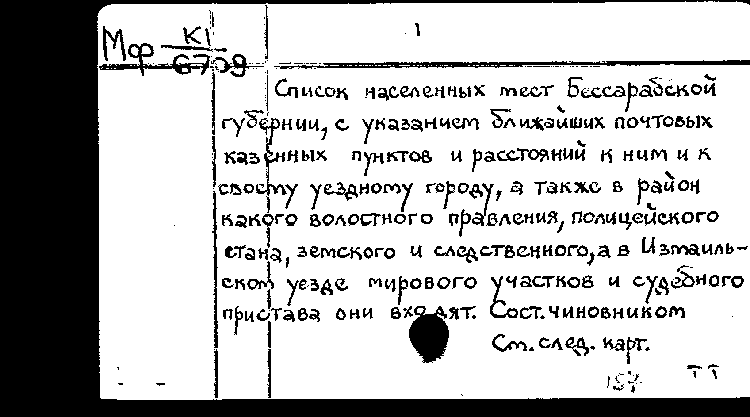 Мф К1/6709
1
Список населенных мест Бессарабской
губернии, с указанием ближайших почтовых
казенных пунктов и расстояний к ним и к
своему уездному городу, а также в район
какого волостного правления, полицейского
стана, земского и следственного, а в Измаиль-
ском уезде мирового участков и судебного
пристава они входят. Сост. чиновником
См. след. карт.